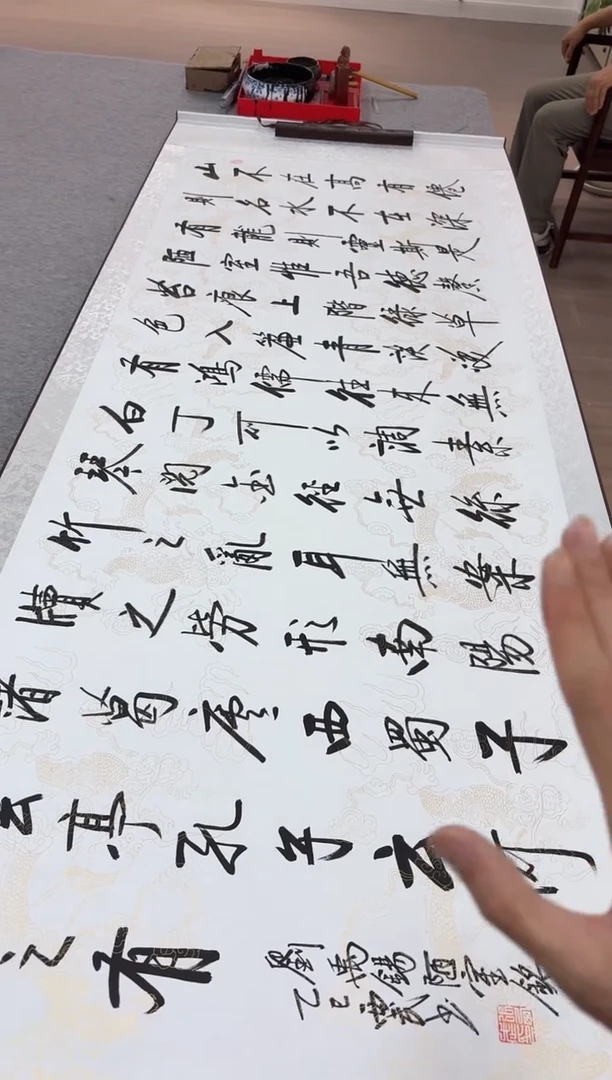 山不在高有僊
則名水不在深
有龍則靈斯是
陋室惟吾德馨
苔痕上階綠草
色入簾青談笑
有鴻儒往來無
白丁可以調素
琴閱金經无絲
竹之亂耳無案
牘之勞形南陽
諸葛廬西蜀子
云亭孔子云何
之有
劉禹錫陋室銘
乙巳